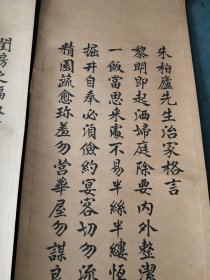 朱柏廬先生治家格言
黎明即起洒掃庭除要内外整潔
一飯當思來處不易半絲半縷恆
掘井自奉必須儉約宴客切勿流
精園蔬愈珍羞勿營華屋勿謀良
閨房之福